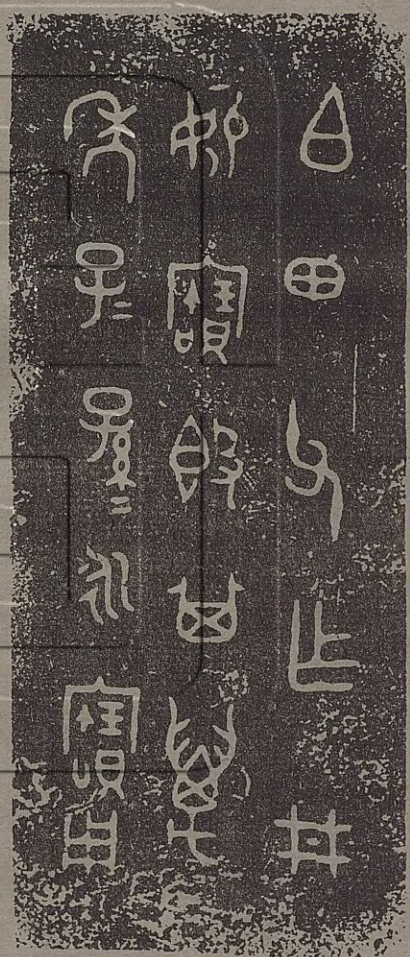 白田父乍井
寶𣪘其萬
年子=孫=永寶用